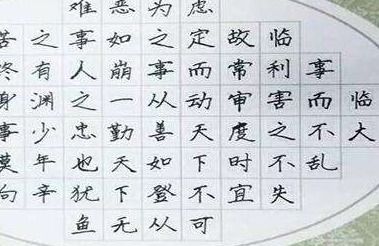 临大
事而不乱
临利害之不失
故常审度时宜
虑定而动天下不可
为之事从善如登从
恶如崩一勤天下无
难事人之忠也犹鱼
之有渊少年辛
苦终身事莫向